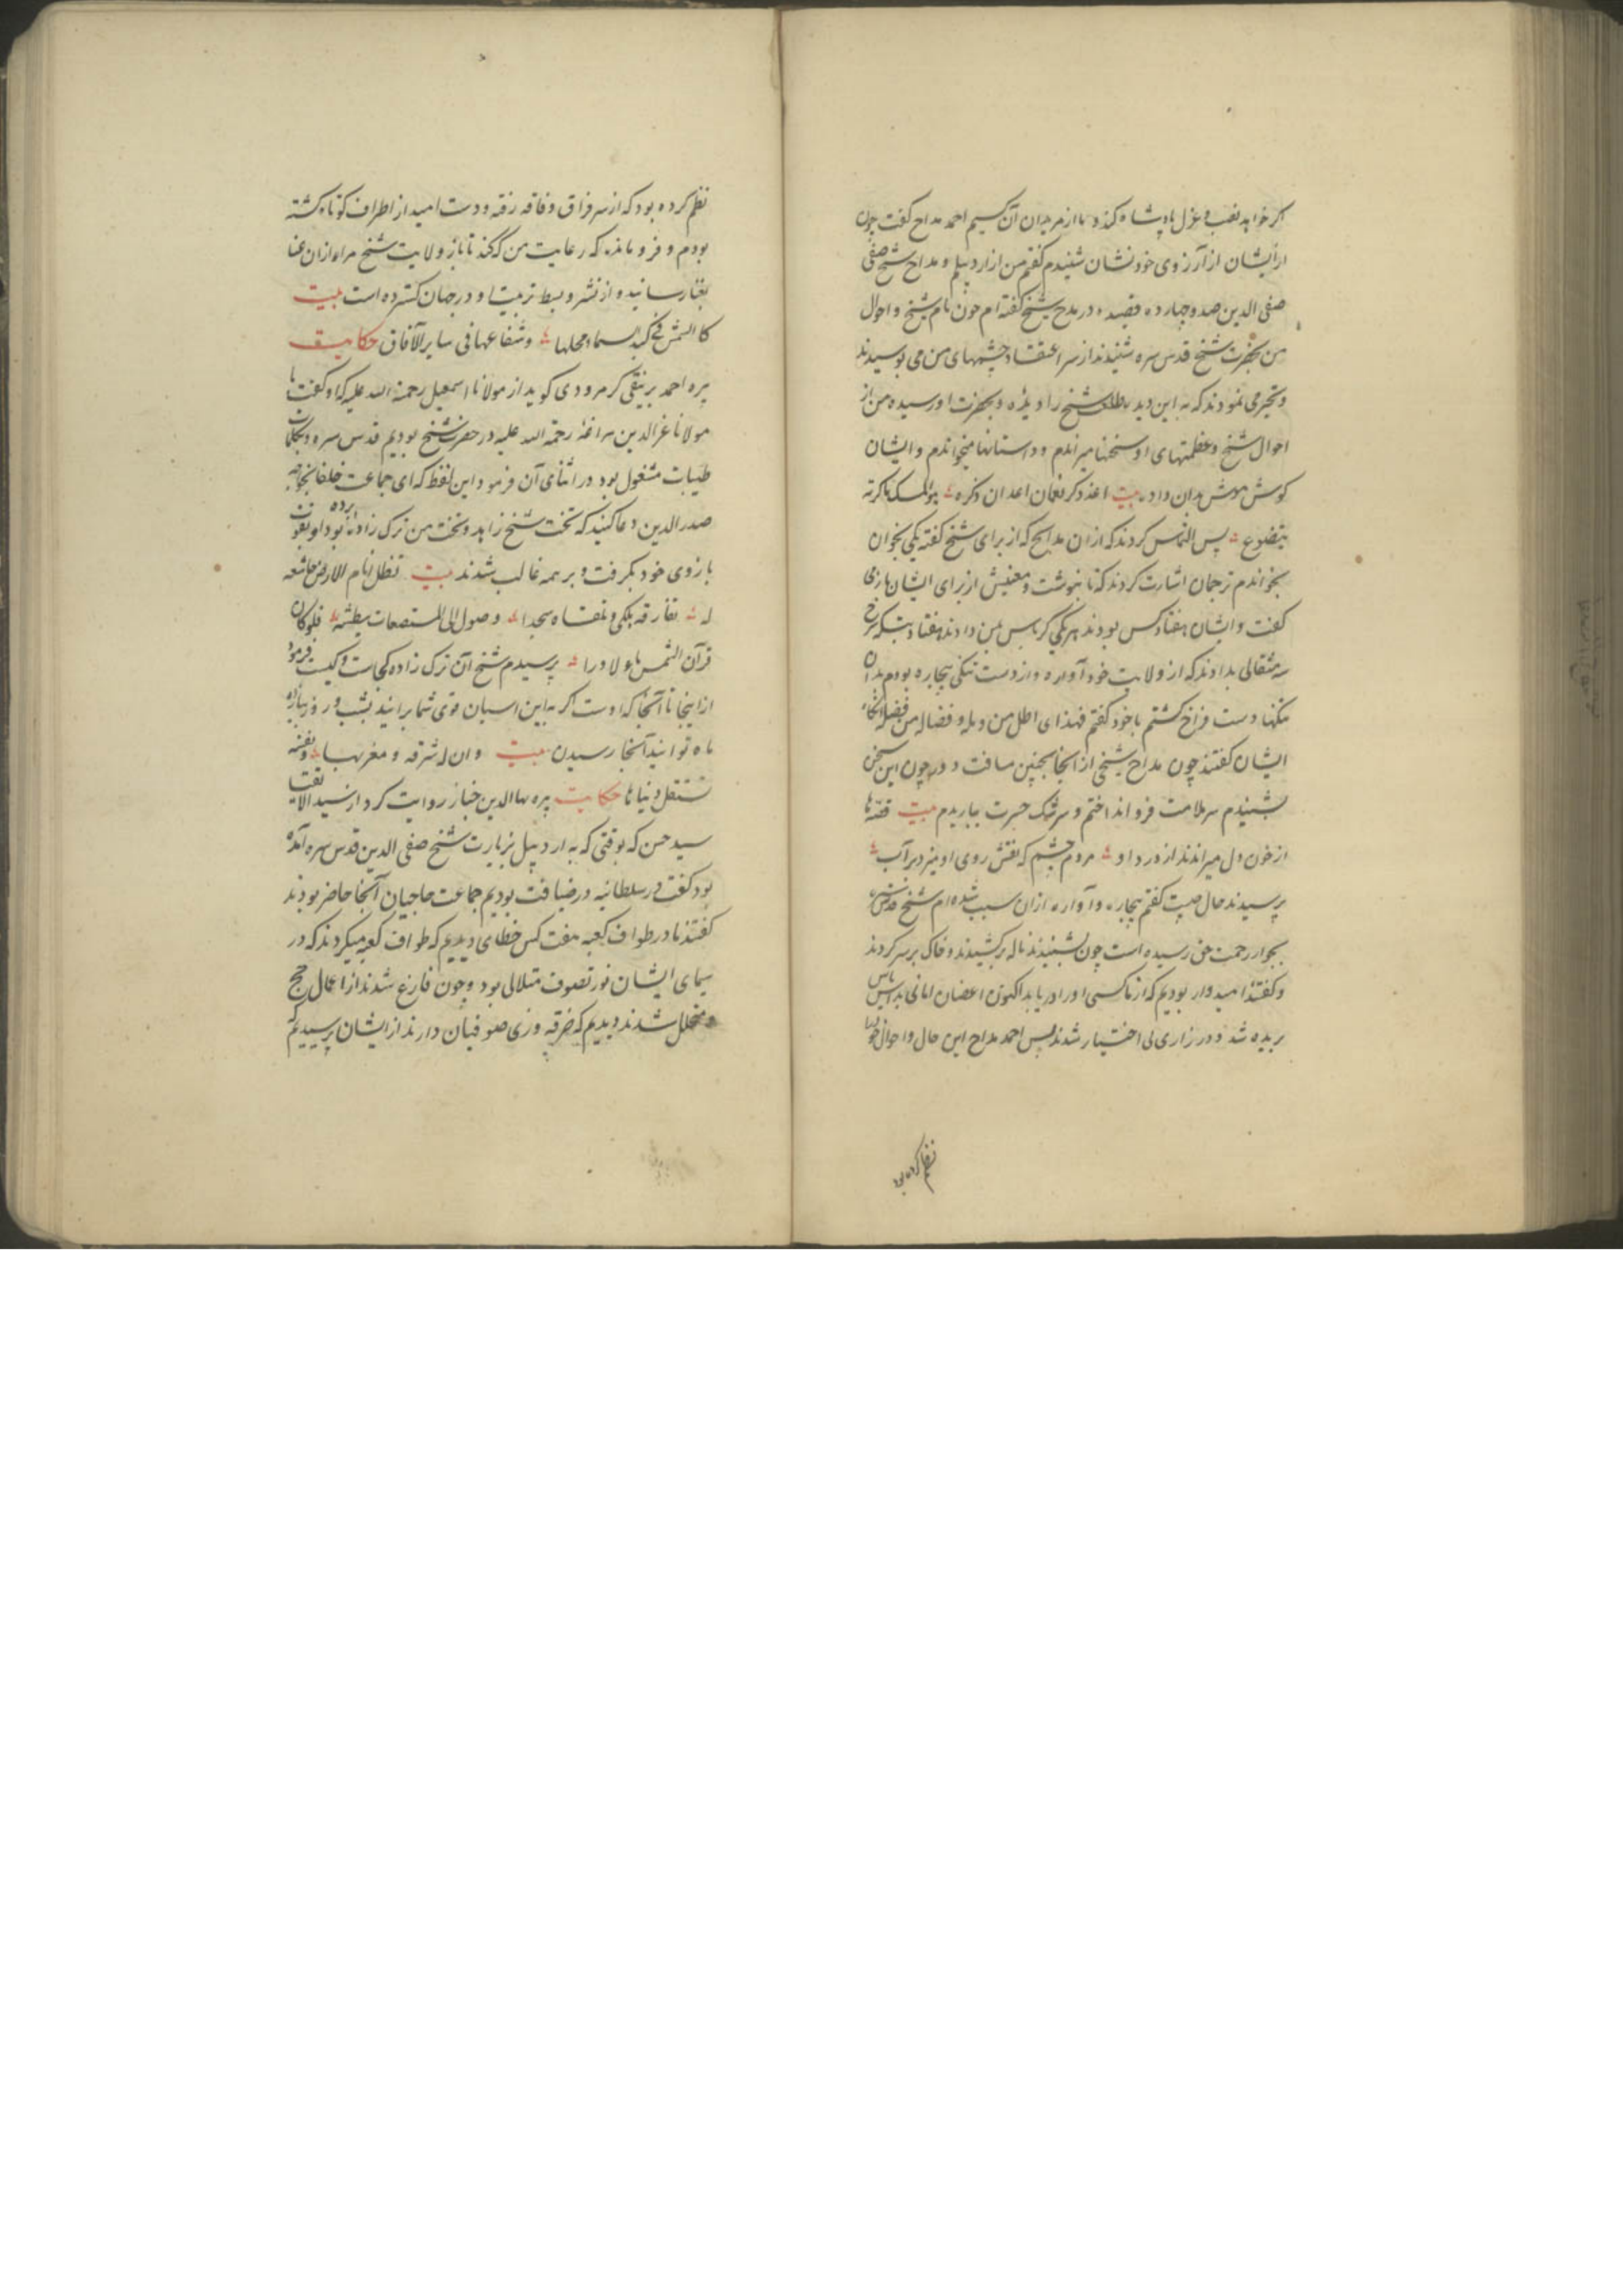 اکر خواهد نصب و عزل پادشاه کند و ما از مریدان آن احمد مداح کفت چون
از ایشان از آرزوی خود نشان شنیدم کفتم من از اردبیلم و مداح شیخ صفی
صفی الدین صد و چهارده قصیده در مدح شیخ کفته ام چون نام شیخ و احوال
من بحضرت شیخ قدس سره شنیدند از سر اعتقاد چشمهای من می بوسیدند
و تحیر می نمودند که به این دیده طلعت شیخ را دیده و بحضرت او رسیده من از
احوال شیخ و عظمتهای او سخنها میراندم و داستانها میخواندم و ایشان
کوش هوش بدان داده بیت اعد ذکر نعمان اعد ان ذکره هو المسک ما کررته
یتضوع پس التماس کردند که از ان مدایح که از برای شیخ کفته یکی بخوان
بخواندم ترجمان اشارت کردند که تا بنوشت و معنیش از برای ایشان بازمی
کفت و ایشان هفتاد کس بودند هر یکی کرباس بمن دادند هفتاد
سه مثقالی بدادند که از ولایت خود آواره و از دست تنکی بیچاره بودم بدان
دست فراخ کشتم با خود کفتم
ایشان کفتند چون مداح شیخی از انجا بچنین مسافت دور چون این سخن
بشنیدم سر ملامت فرو انداختم و سرشک حسرت بباریدم بیت قصه ها
از خون دل میراندند از درد او مردم چشمم که نقش روی او میزد بر آب
پرسیدند حال چیست کفتم بیچاره و آواره ازان سبب شده ام شیخ قدس سره
بجوار رحمت حق رسیده است چون بشنیدند ناله برکشیدند و خاک بر سر کردند
و کفتند امیدوار بودیم که از ما کسی او را دریابد اکنون اغصان امانی بداس یاس
بریده شد و در زاری بی اختیار شدند پس احمد مداح این حال و احوال خود را
نظم کرده بود
نظم کرده بود که از سر فراق و فاقه رفته و دست امید از اطراف کوتاه کشته
بودم و فرو مانده که رعایت من که کند تا باز ولایت شیخ مرا
رسانید و از نشر و بسط تربیت او در جهان کسترده است بیت
کالشمس فی کبد السماء محلها و شعاعها فی سایر الآفاق حکایت
پیره احمد کرمرودی کوید از مولانا اسمعیل رحمة الله علیه که او کفت با
مولانا عزالدین مراغه رحمة الله علیه در حضرت شیخ بودیم قدس سره و بکلمات
طیبات مشغول بود در اثنای آن فرمود این لفظ که ای جماعت خلفا بخواجه
صدر الدین دعا کنید که تخت شیخ زاهد و تخت من ترک زاده برده بود او بقوت
بازوی خود بکرفت و بر همه غالب شدند بیت تظل انام الارض خاشعه
له تفارقه هلکی و تلقاه سجدا وصول الی المستصعبات فلو کان
قرن الشمس ماء لاوردا پرسیدم شیخ آن ترک زاده کجاست و کیست فرمود
از اینجا تا آنجا که اوست اکر به این اسبان قوی شما برانید بشب و روز
ماه توانید آنجا رسیدن بیت
حکایت پیره بهاالدین خباز روایت کرد از سید
سید حسن که بوقتی که به اردبیل بزیارت شیخ صفی الدین قدس سره آمده
بود کفت در سلطانیه در ضیافت بودیم جماعت حاجیان آنجا حاضر بودند
کفتند ما در طواف کعبه هفت کس خطای دیدیم که طواف کعبه میکردند که در
سیمای ایشان نور تصوف متلالی بود و چون فارغ شدند از اعمال حج
و متحلل شدند دیدیم که خرقه و زی صوفیان دارند از ایشان پرسیدیم که